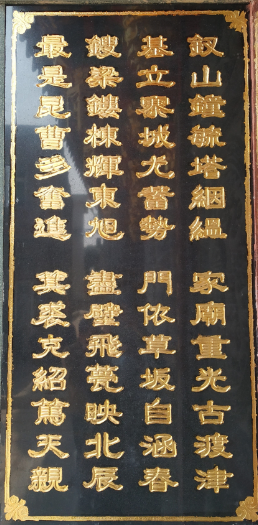 釵山鐘毓塔絪縕家廟重光古渡津
基立城尤蓄勢門依草坂自涵春
鎪梁鏤棟輝東旭畫壁飛甍映北辰
最是昆曹多奮進箕裘克紹篤天親